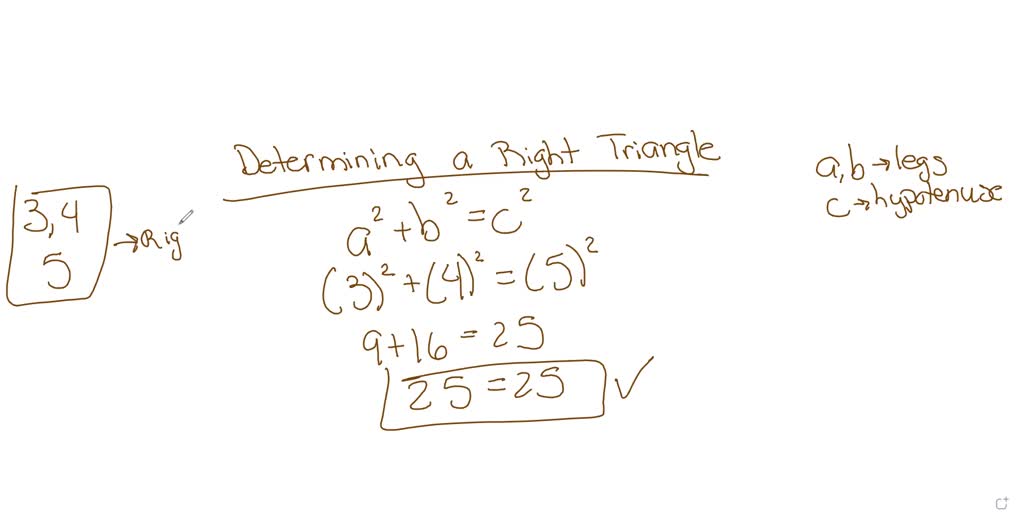 Determining a Right Triangle
a, b → legs
c → hypotenuse
3, 4
5
→ Rig
a² + b² = c²
(3)² + (4)² = (5)²
9 + 16 = 25
25 = 25 ✓